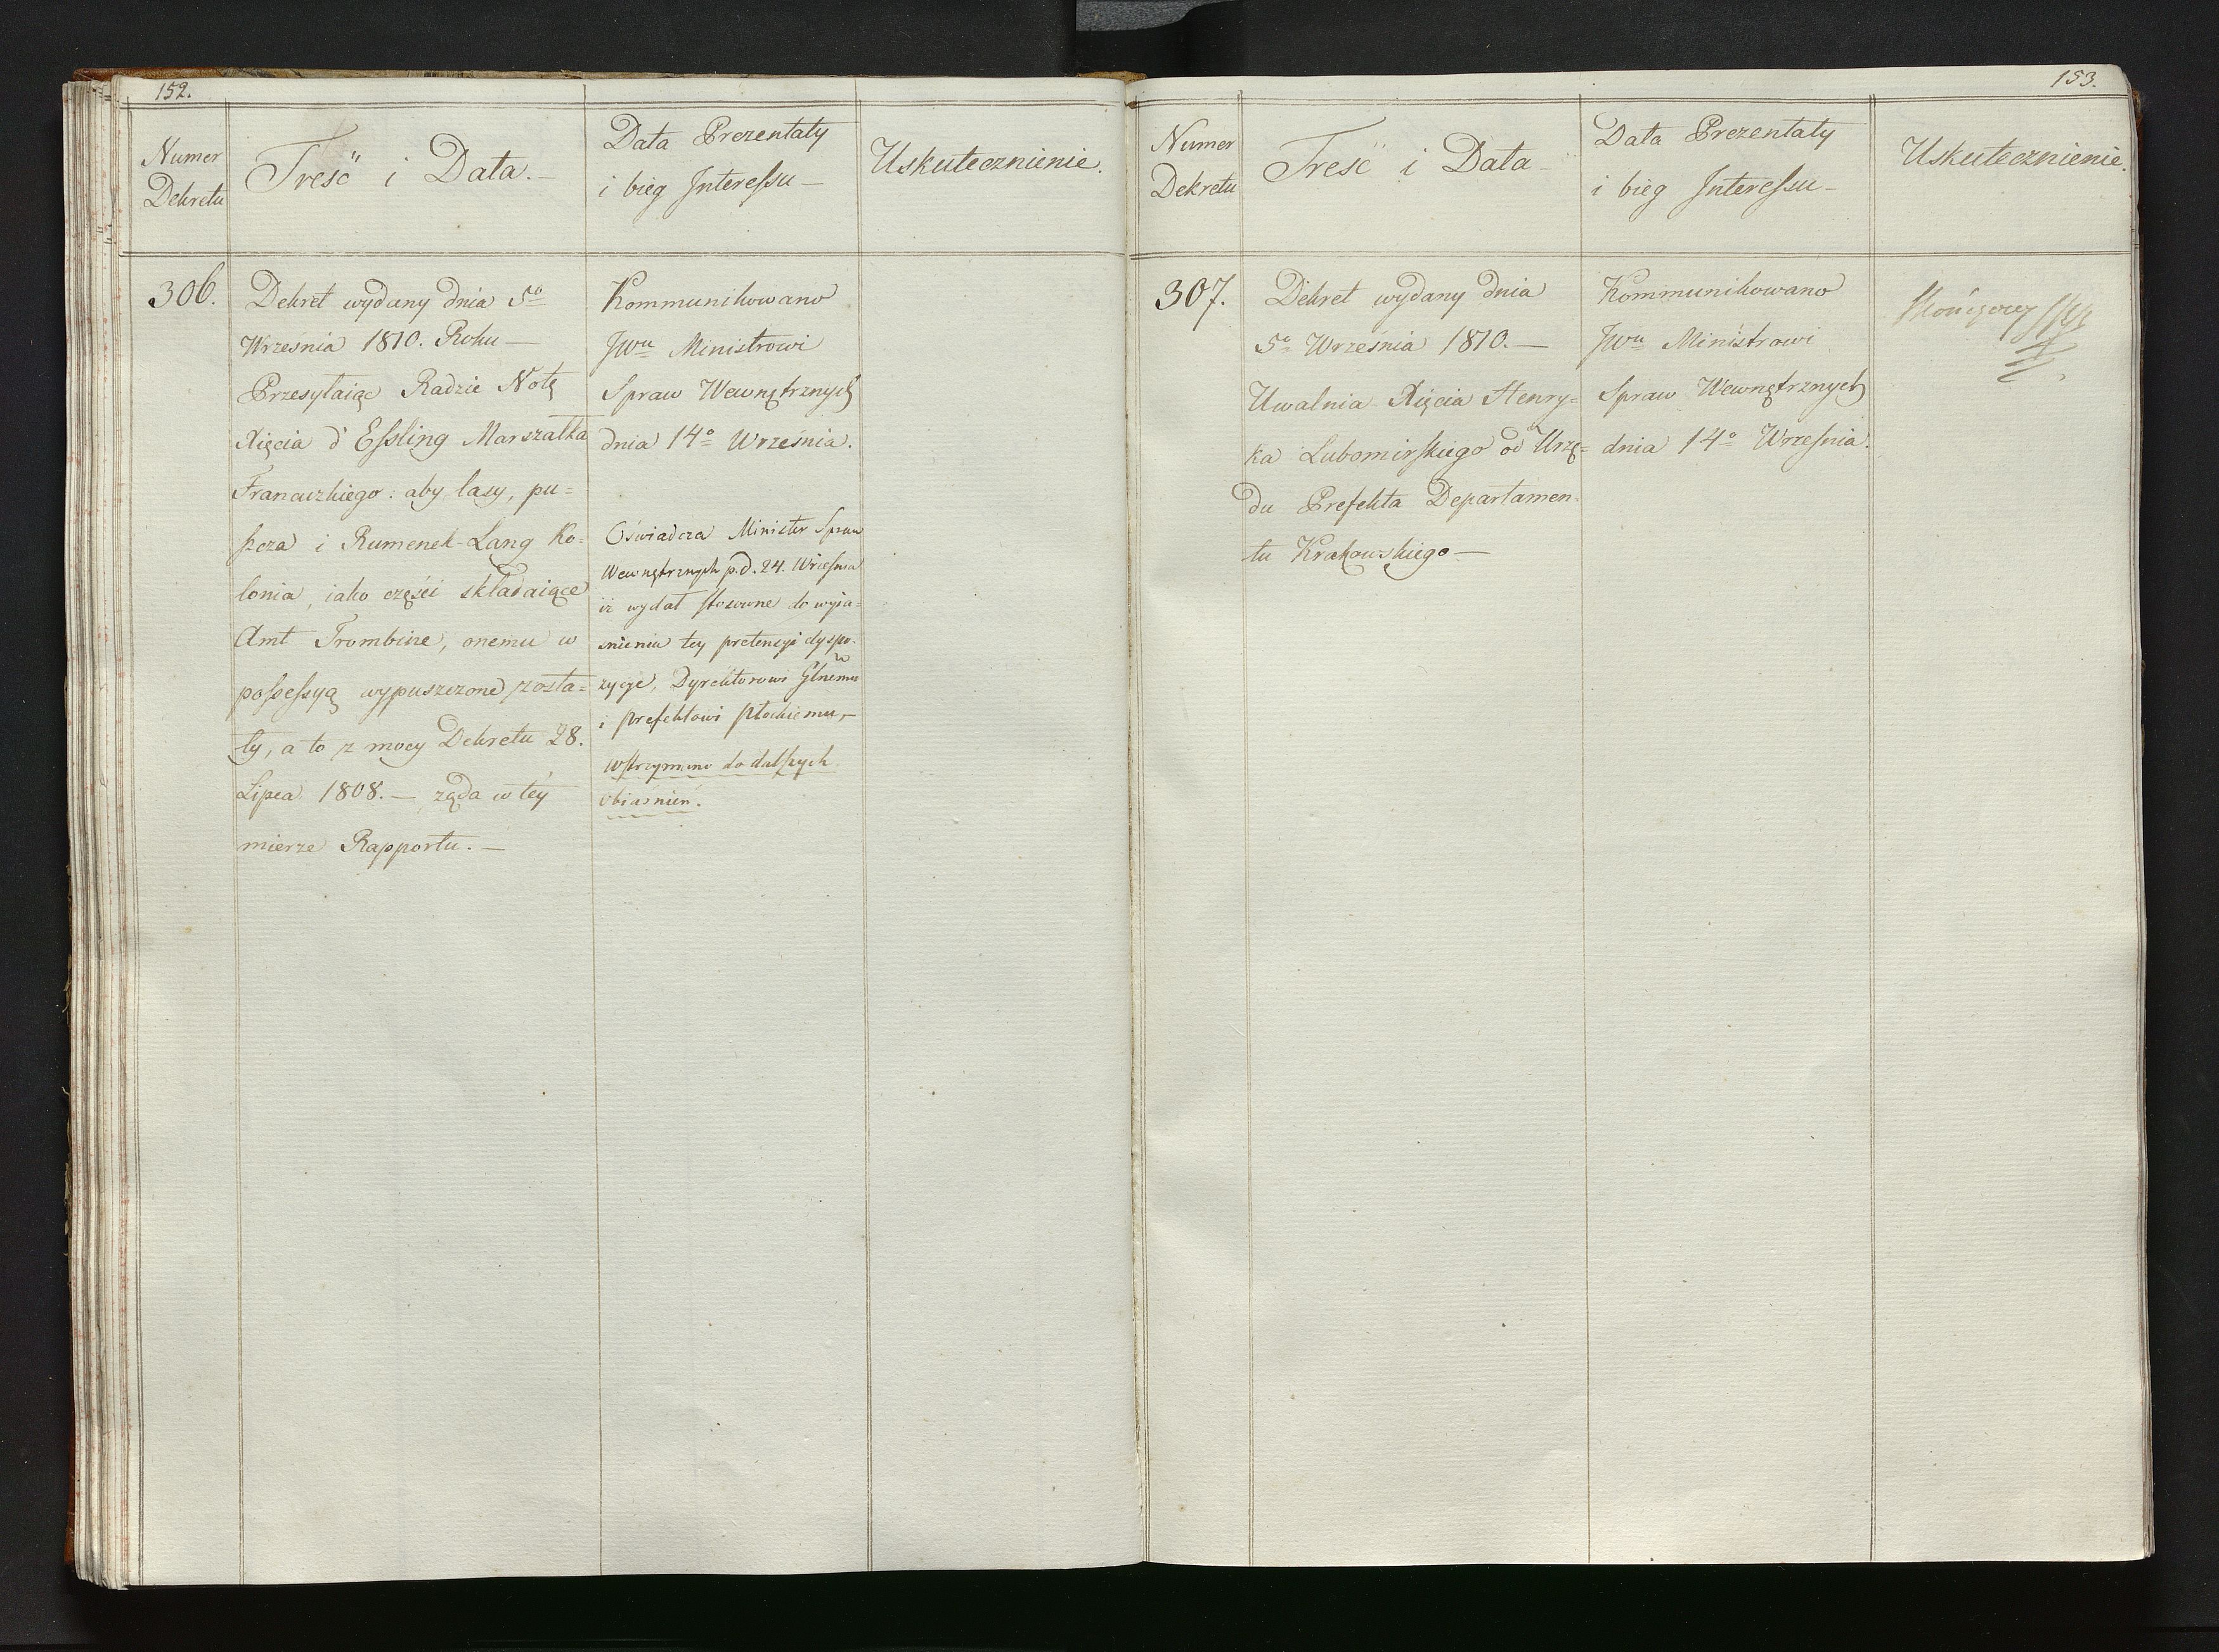 152.
Numer
Dekretu
Treść i Data.—
Data Prezentaty
i bieg Interessu—
Uskutecznienie.
306.
Dekret wydany dnia 5o
Września 1810. Roku—
Przesyłaiąc Radzie Notę
Xięcia d'Essling Marszałka
Francuzkiego: aby lasy, pu=
szcza i Rumenek-Lang Ko=
lonia, iako części składaiące
Amt Trombine, onemu w
possessyą wypuszczone zosta=
ły, a to z mocy Dekretu 28.
Lipca 1808.— żąda w téy
mierze Rapportu.—
Kommunikowano
JWu Ministrowi
Spraw Wewnętrznych
dnia 14o Września.
Oświadcza Minister Spraw
Wewnętrznych p.d. 24. Września
iż wydał stosowne do wyia=
śnienia tey pretensyi dyspo=
zycye, Dyrektorowi Glnemu
i prefektowi Płockiemu,—
wstrzymano do dalszych
obiaśnień.
153.
Numer
Dekretu
Treść i Data—
Data Prezentaty
i bieg Interessu—
Uskutecznienie.
307.
Dekret wydany dnia
5o Września 1810.—
Uwalnia Xięcia Henry=
ka Lubomirskiego od Urzę=
du Prefekta Departamen=
tu Krakowskiego—
Kommunikowano
JWu Ministrowi
Spraw Wewnętrznych
dnia 14o Września.